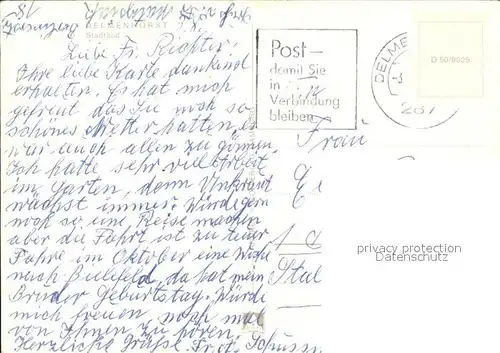 DELMENHORST
Stadtbad
Liebe Fr. Richter!
Ihre liebe Karte dankend
erhalten. Es hat mich
gefreut das Sie noch so
schönes Wetter hatten, es
war auch allen zu gönnen.
Ich hatte sehr viel Arbeit
im Garten, denn Unkraut
wächst immer. Würde gern
noch so eine Reise machen
aber die Fahrt ist zu teuer
Fahre im Oktober eine Woche
nach Bielefeld, da hat mein
Bruder Geburtstag. Würde
mich freuen noch mal
von Ihnen zu hören.
Herzliche Grüße Fr.
Post —
damit Sie
in
Verbindung
bleiben
DELME
287
D 50/8025
Frau
privacy protection
Datenschutz